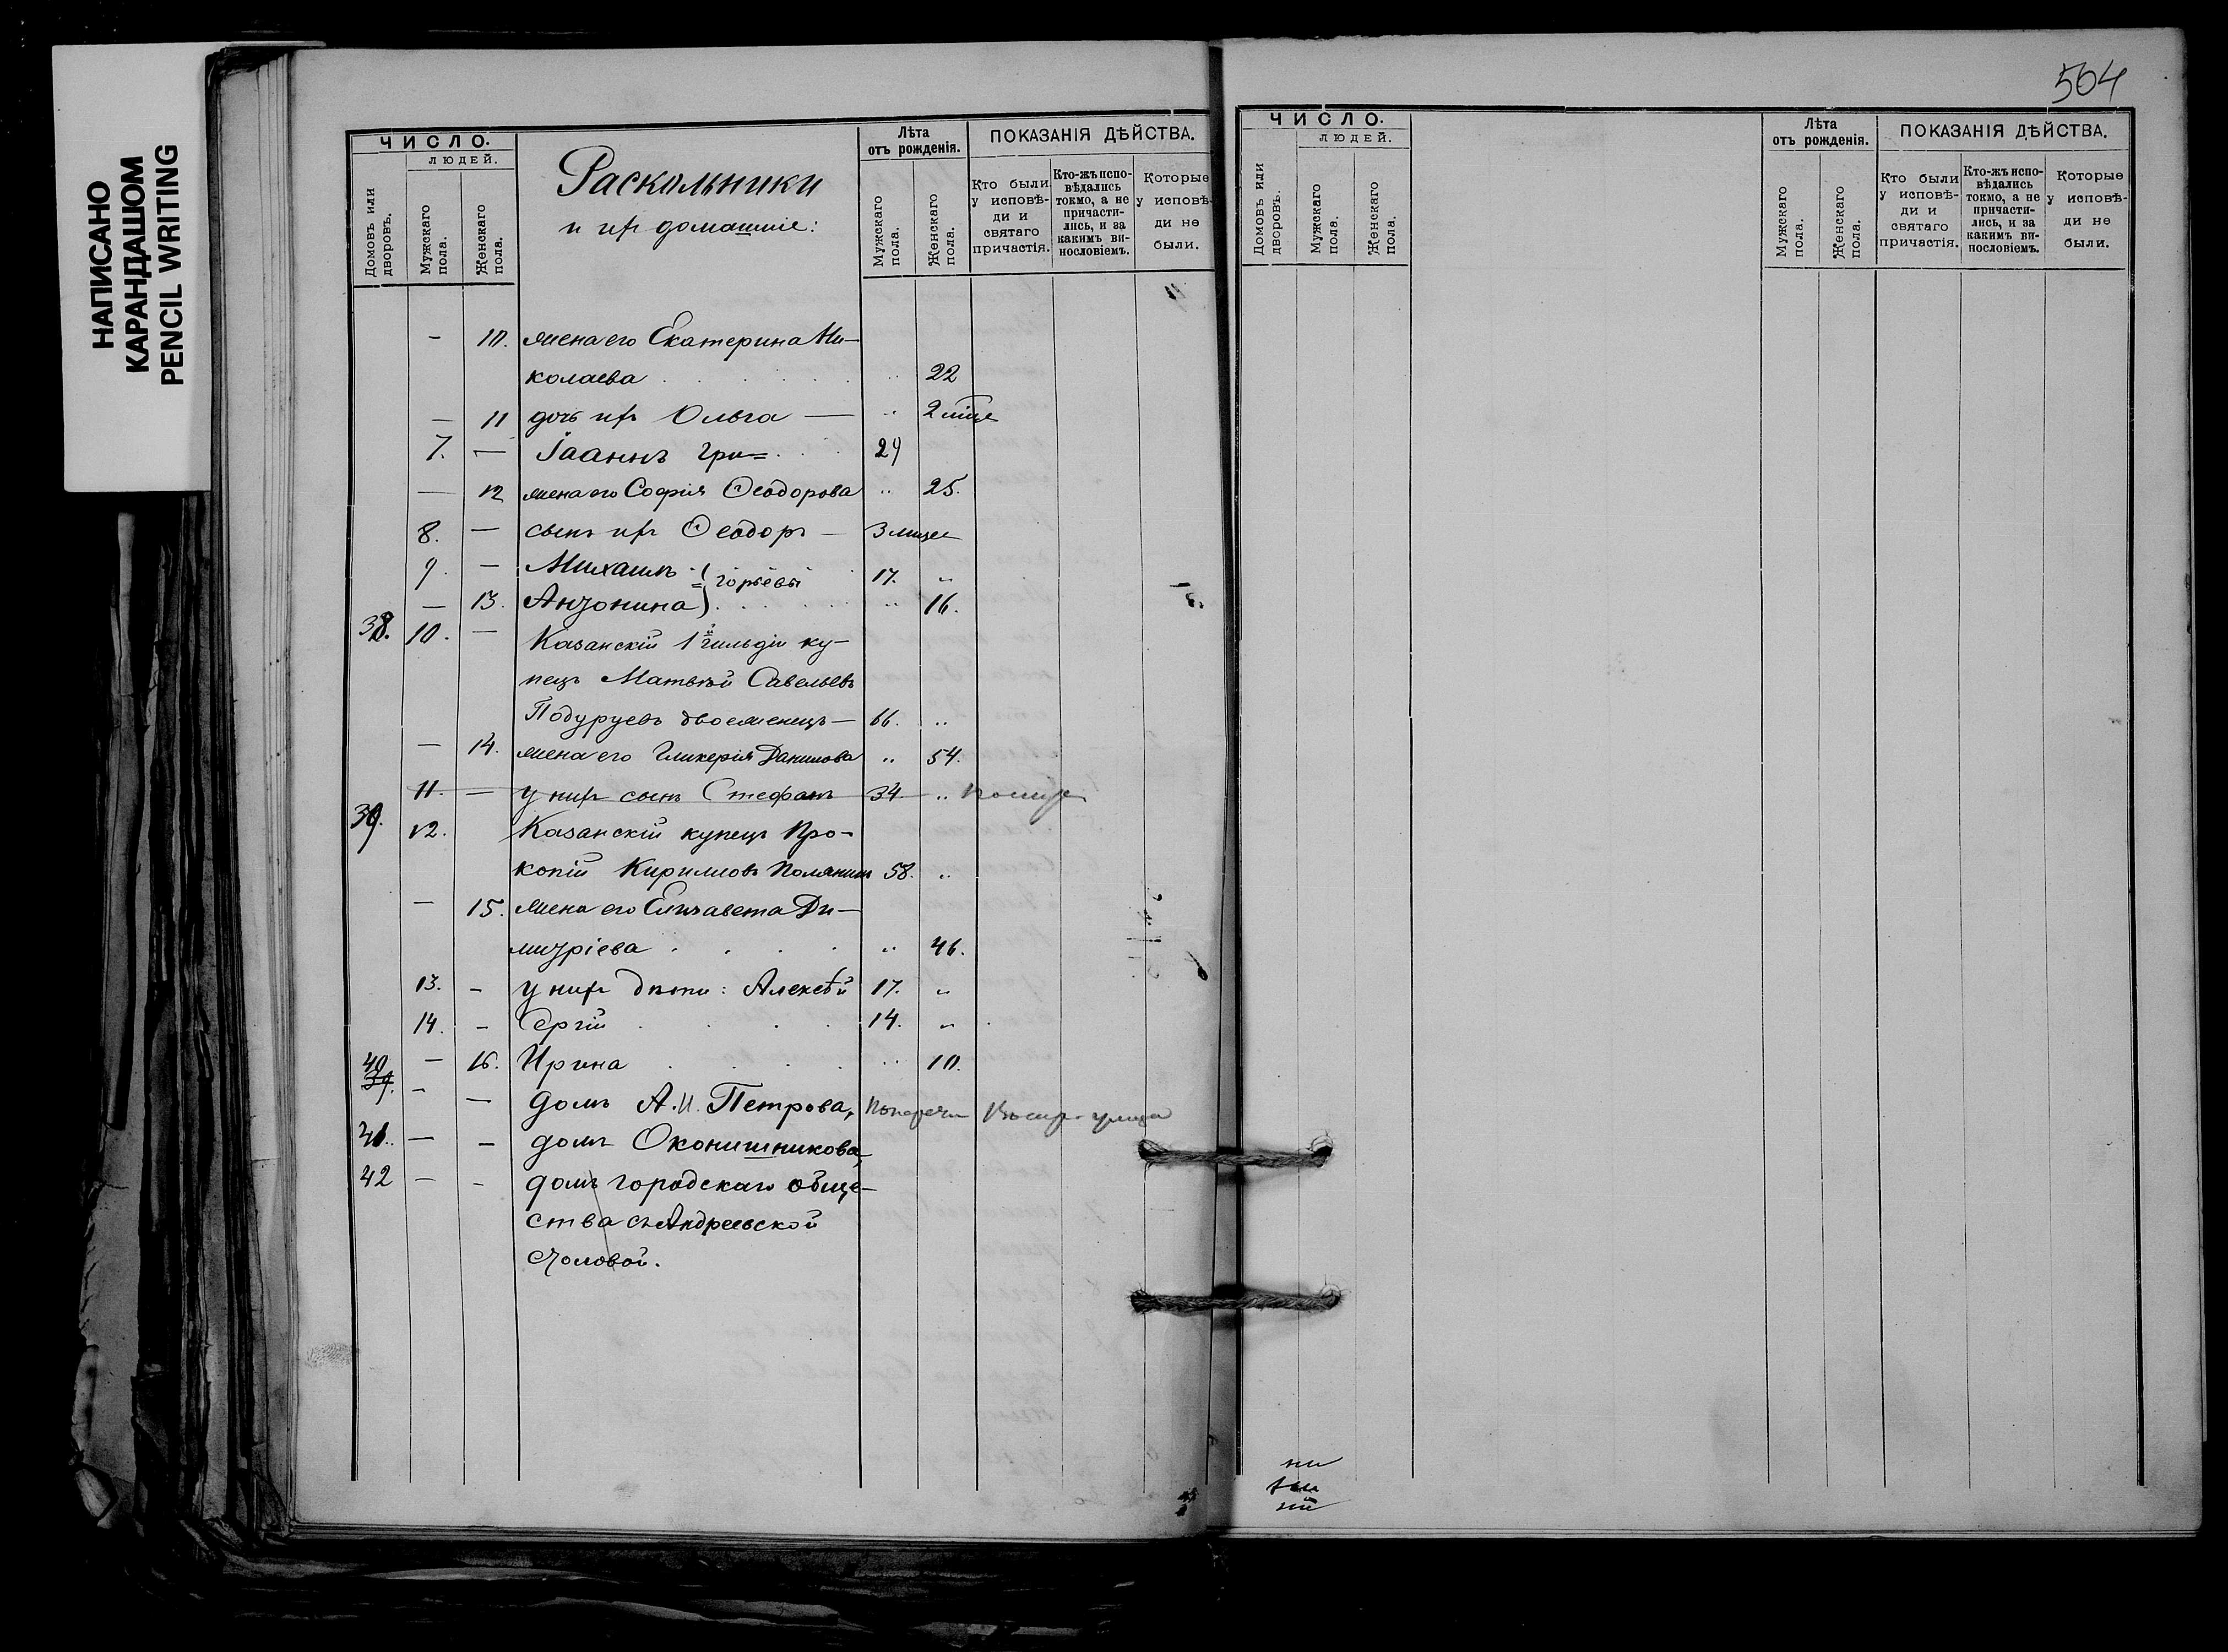 НАПИСАНО
КАРАНДАШОМ
PENCIL WRITING
ЧИСЛО.
ЛЮДЕЙ.
Домовъ или дворовъ.
Мужскаго пола.
Женскаго пола.
Раскольники
и ихъ домашніе:
Лѣта
отъ рожденія.
Мужскаго пола.
Женскаго пола.
ПОКАЗАНІЯ ДѢЙСТВА.
Кто были у исповѣ-ди и святаго причастія.
Кто-жъ испо-вѣдались токмо, а не причасти-лись, и за какимъ ви-нословіемъ.
Которые у исповѣ-ди не были.
— 10. жена его Екатерина Ни-
колаева .. 22
— 11 дочь ихъ Ольга — ..
7. — Іоаннъ 24
— 12 жена его Софія Ѳеодорова .. 25.
8. — сынъ ихъ Ѳеодоръ —
9. — Михаилъ 17. ..
— 13. Антонина .. 16.
38. 10. — Казанскій 1й гильдіи ку-
пецъ Матвѣй Савельевъ
Подуруевъ двоеженецъ — 66. ..
— 14. жена его Гликерія Данилова .. 54.
11. — у нихъ сынъ Стефанъ 34 ..
39. 12. Казанскій купецъ Про-
копій Кирилловъ Полянинъ 58. ..
— 15. жена его Елизавета Ди-
митріева .. 46.
13. — у нихъ дѣти: Алексѣй 17. ..
14. — Сергій 14. ..
— 16. Ирина .. 10.
40 39. — — домъ А. И. Петрова,
41. — — домъ Оконишникова,
42 — — домъ городскаго обще-
ства съ Андреевской
столовой.
504
ЧИСЛО.
ЛЮДЕЙ.
Домовъ или дворовъ.
Мужскаго пола.
Женскаго пола.
Лѣта
отъ рожденія.
Мужскаго пола.
Женскаго пола.
ПОКАЗАНІЯ ДѢЙСТВА.
Кто были у исповѣ-ди и святаго причастія.
Кто-жъ испо-вѣдались токмо, а не причасти-лись, и за какимъ ви-нословіемъ.
Которые у исповѣ-ди не были.